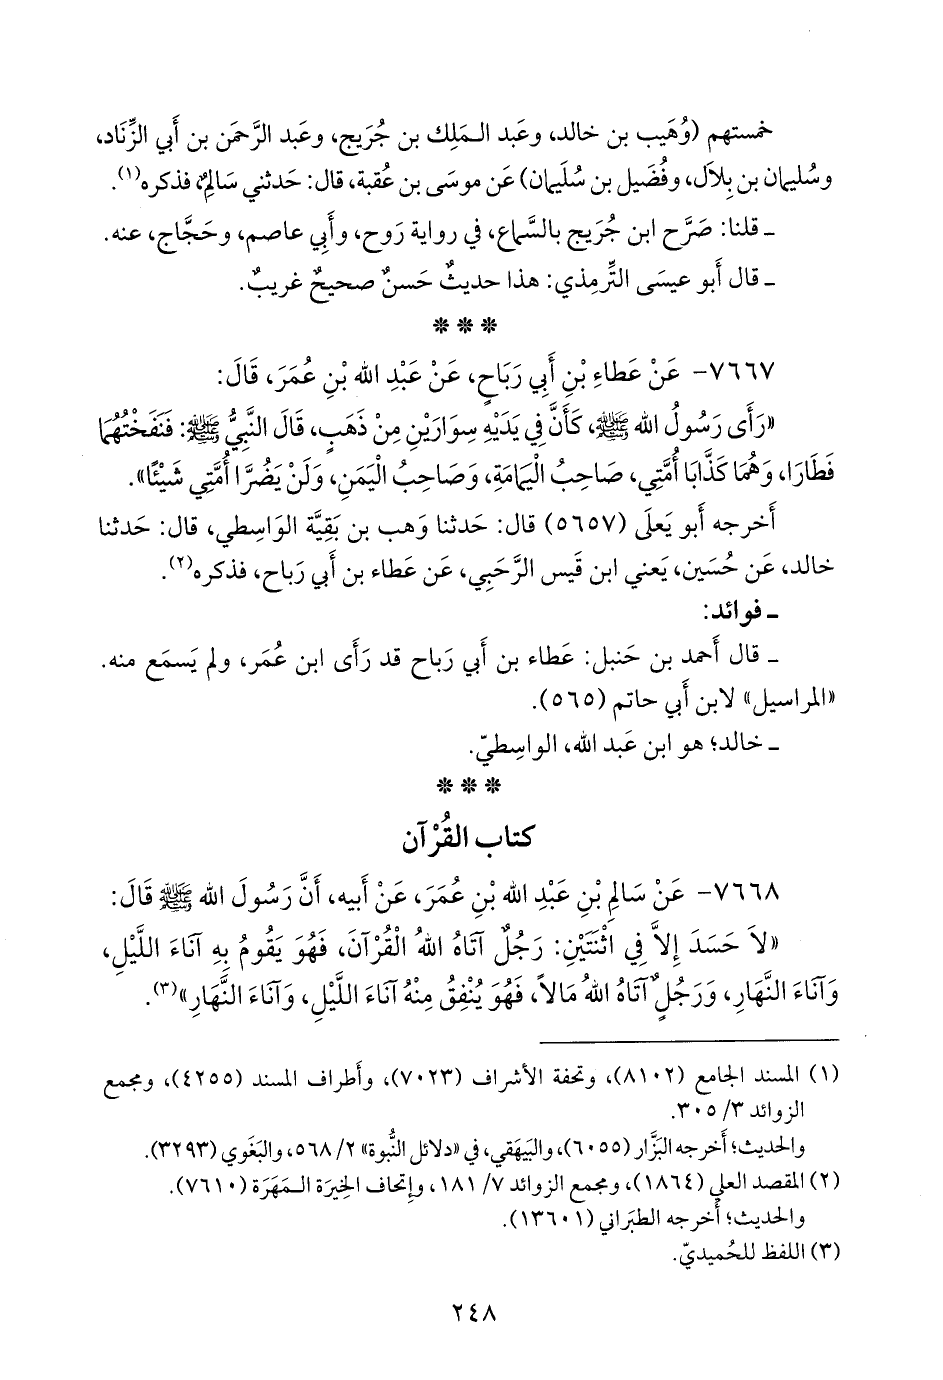 خمستهم (وُهَيب بن خالد، وعَبد الـمَلِك بن جُرَيج، وعَبد الرَّحمَن بن أَبي الزِّنَاد،
وسُليمان بن بِلاَل، وفُضَيل بن سُلَيمان) عَن موسَى بن عُقبة، قال: حَدثني سَالِمٌ، فذكره(١).
ـ قلنا: صَرَّح ابن جُرَيج بالسَّماع، في رواية رَوح، وأَبي عاصم، وحَجَّاج، عنه.
ـ قال أَبو عيسَى التِّرمِذي: هذا حديثٌ حَسنٌ صحيحٌ غريبٌ.
* * *
٧٦٦٧- عَنْ عَطاءِ بْنِ أَبِي رَبَاحٍ، عَنْ عَبْدِ الله بْنِ عُمَرَ، قَالَ:
«رَأَى رَسُولُ الله ﷺ، كَأَنَّ فِي يَدَيْهِ سِوَارَيْنِ مِنْ ذَهَبٍ، قَالَ النَّبِيُّ ﷺ: فَنَفَخْتُهُمَا
فَطَارَا، وَهُمَا كَذَّابَا أُمَّتِي، صَاحِبُ الْيَمَامَةِ، وَصَاحِبُ الْيَمَنِ، وَلَنْ يَضُرَّا أُمَّتِي شَيْئًا».
أَخرجه أَبو يَعلَى (٥٦٥٧) قال: حَدثنا وَهب بن بَقِيَّة الوَاسِطي، قال: حَدثنا
خالد، عَن حُسَين، يَعني ابن قَيس الرَّحَبي، عَن عَطاء بن أَبي رَباح، فذكره(٢).
ـ فوائد:
ـ قال أَحمد بن حَنبل: عَطاء بن أَبي رَباح قد رَأَى ابن عُمَر، ولم يَسمَع منه.
«المراسيل» لابن أَبي حاتم (٥٦٥).
ـ خالد؛ هو ابن عَبد الله، الواسِطيّ.
* * *
كتاب القُرْآن
٧٦٦٨- عَنْ سَالِمِ بْنِ عَبْدِ الله بْنِ عُمَرَ، عَنْ أَبيه، أَنَّ رَسُولَ الله ﷺ قَالَ:
«لاَ حَسَدَ إِلاَّ فِي اثْنَتَيْنِ: رَجُلٌ آتَاهُ اللهُ الْقُرْآنَ، فَهُوَ يَقُومُ بِهِ آنَاءَ اللَّيْلِ،
وَآنَاءَ النَّهَارِ، وَرَجُلٌ آتَاهُ اللهُ مَالاً، فَهُوَ يُنْفِقُ مِنْهُ آنَاءَ اللَّيْلِ، وَآنَاءَ النَّهَارِ»(٣).
(١) المسند الجامع (٨١٠٢)، وتحفة الأشراف (٧٠٢٣)، وأطراف المسند (٤٢٥٥)، ومجمع
الزوائد ٣/ ٣٠٥.
والحديث؛ أَخرجه البَزَّار (٦٠٥٥)، والبَيهَقي، في «دلائل النُّبوة» ٢/ ٥٦٨، والبَغَوي (٣٢٩٣).
(٢) المقصد العلي (١٨٦٤)، ومجمع الزوائد ٧/ ١٨١، وإتحاف الخِيرَة الـمَهَرَة (٧٦١٠).
والحديث؛ أَخرجه الطبَراني (١٣٦٠١).
(٣) اللفظ للحُميديّ.
٢٤٨